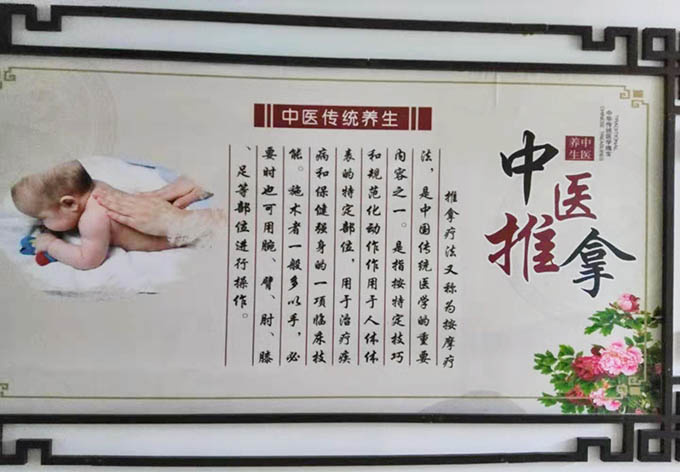 中医传统养生
中医
养生
中华传统医学瑰宝
TRADITIONAL
中医
推拿
推拿疗法又称为按摩疗
法，是中国传统医学的重要
内容之一。是指按特定技巧
和规范化动作作用于人体体
表的特定部位，用于治疗疾
病和保健强身的一项临床技
能。施术者一般多以手，必
要时也可用腕、臂、肘、膝
、足等部位进行操作。